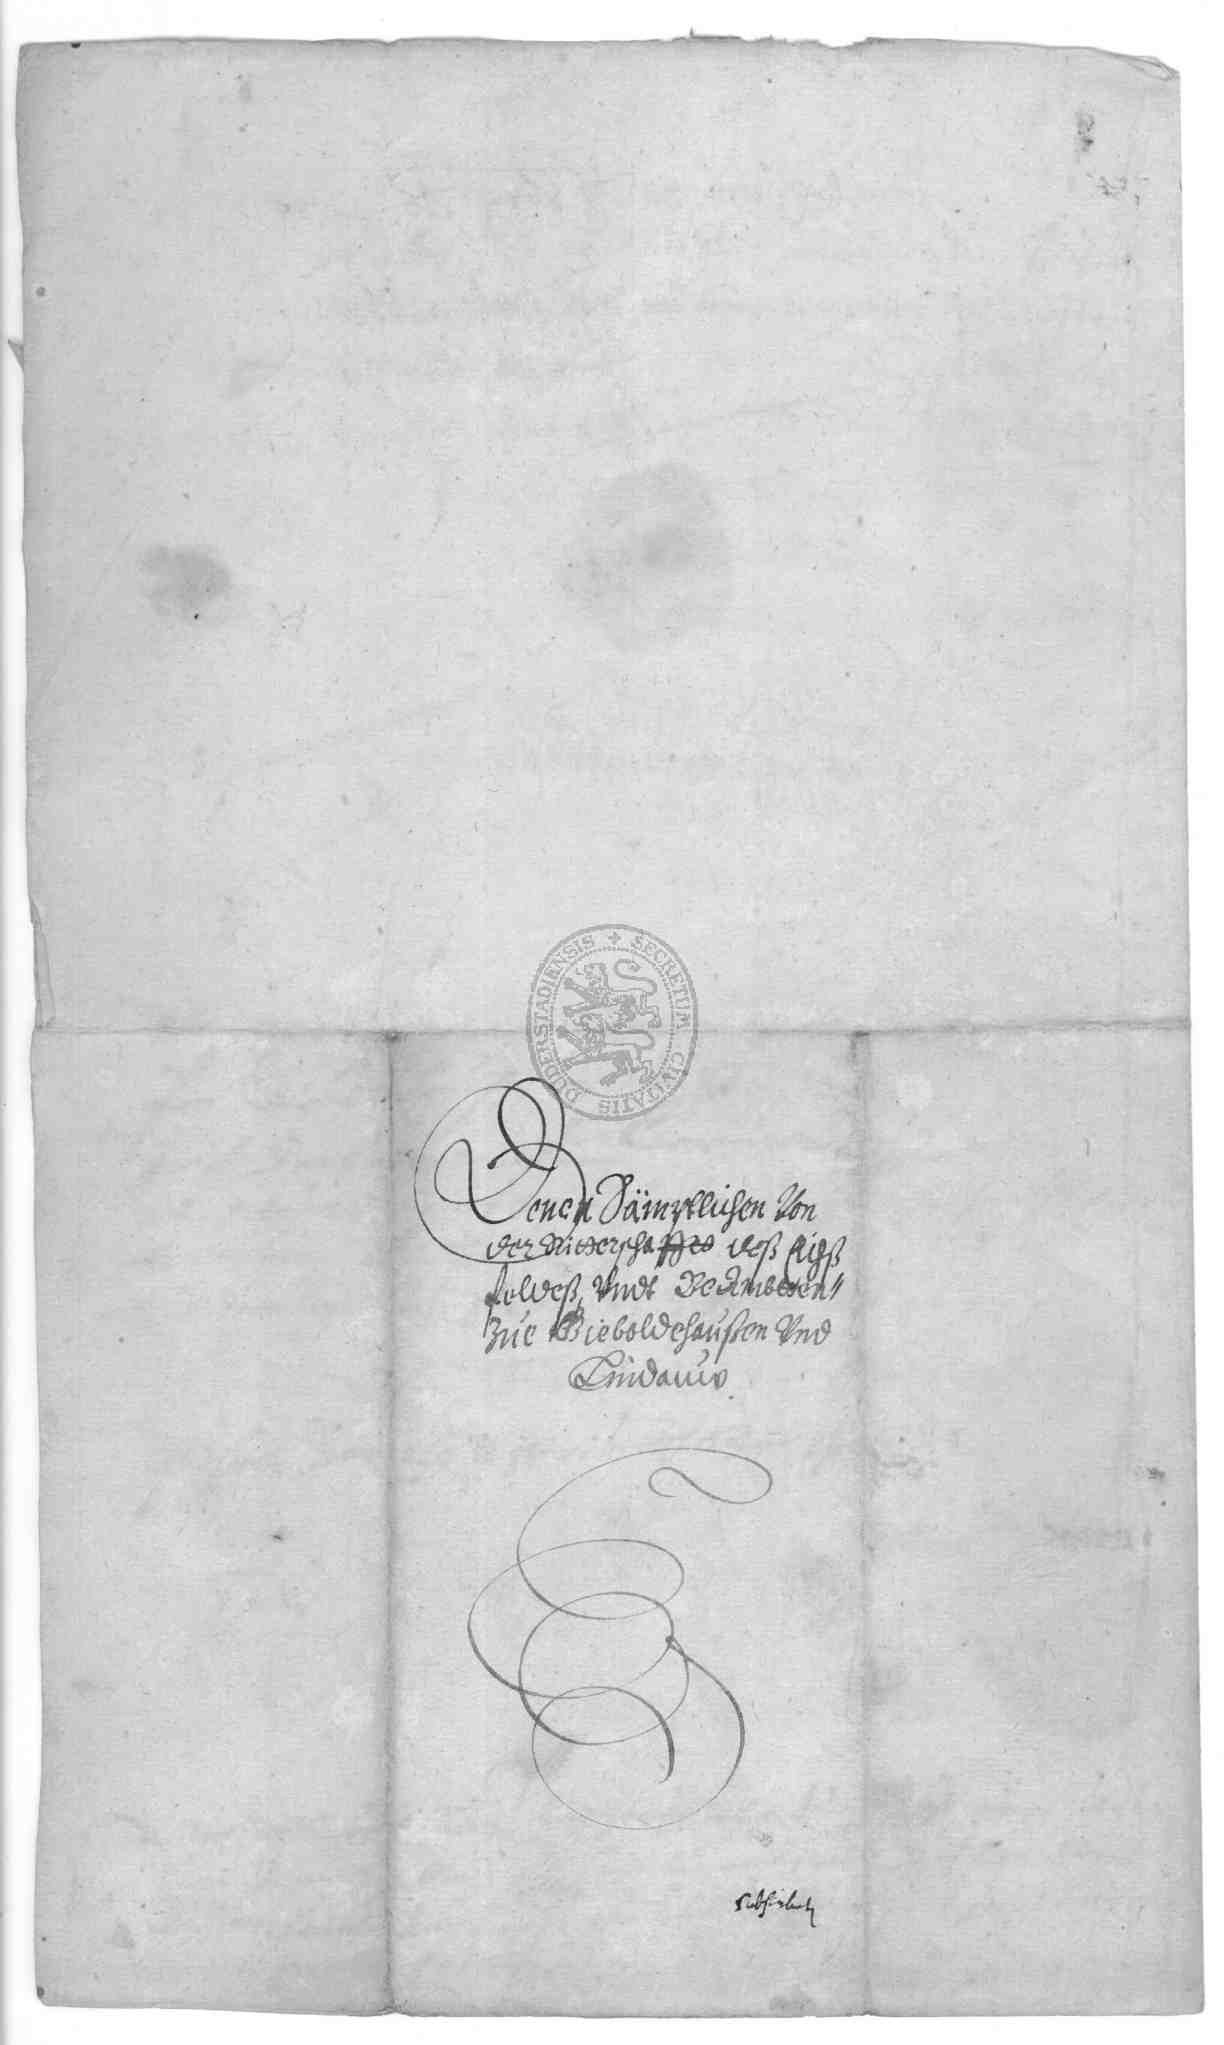 SECRETUM CIVITATIS DUDERSTADIENSIS
Denen Sämptlichen Von
der Ritterschafft deß Eichß
feldeß, Undt Beambten
Zue Gieboldehaußen Und
Lindauw